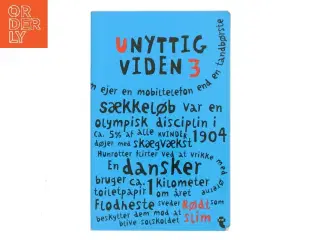 OR
DER
LY
UNYTTIG
VIDEN 3
ejer en mobiltelefon end en tandbørste
sækkeløb var en
olympisk disciplin i
ca. 5% af alle KVINDER 1904
døjer med skægvækst
Hunrotter flirter ved at vrikke med
ørerne
En dansker
bruger ca. 1 kilometer
toiletpapir om året
Flodheste sveder Rødt som
beskytter dem mod at slim
blive solskoldet